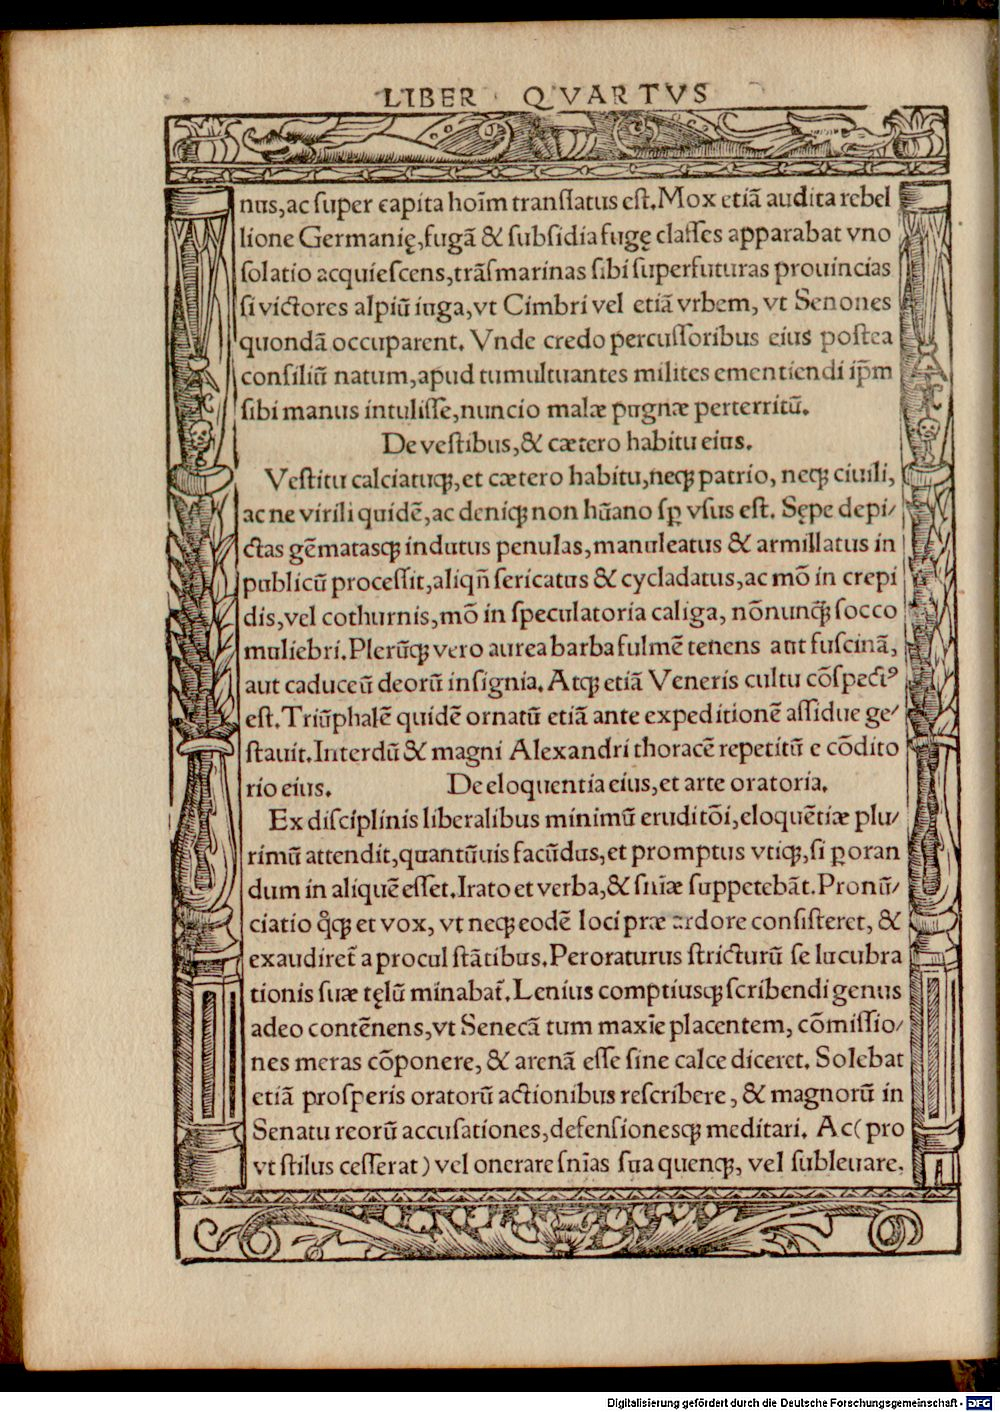 LIBER QVARTVS
nus, ac super capita hoīm translatus est. Mox etiā audita rebel
lione Germanię, fugā & subsidia fugę classes apparabat vno
solatio acquiescens, trāsmarinas sibi superfuturas prouincias
si victores alpiū iuga, vt Cimbri vel etiā vrbem, vt Senones
quondā occuparent. Vnde credo percussoribus eius postea
consiliū natum, apud tumultuantes milites ementiendi ip̄m
sibi manus intulisse, nuncio malæ pugnæ perterritū.
De vestibus, & cætero habitu eius.
Vestitu calciatuqꝫ, et cætero habitu, neqꝫ patrio, neqꝫ ciuili,
ac ne virili quidē, ac deniqꝫ non hūano sꝑ vsus est. Sępe depi/
ctas gēmatasqꝫ indutus penulas, manuleatus & armillatus in
publicū processit, aliqn̄ sericatus & cycladatus, ac mō in crepi
dis, vel cothurnis, mō in speculatoria caliga, nōnunq̄ socco
muliebri. Plerūqꝫ vero aurea barba fulmē tenens aut fuscinā,
aut caduceū deorū insignia. Atqꝫ etiā Veneris cultu cōspectꝰ
est. Triūphalē quidē ornatū etiā ante expeditionē assidue ge/
stauit. Interdū & magni Alexandri thoracē repetitū e cōdito
rio eius. De eloquentia eius, et arte oratoria.
Ex disciplinis liberalibus minimū eruditōi, eloquētiæ plu/
rimū attendit, quantūuis facūdus, et promptus vtiqꝫ, si ꝑoran
dum in aliquē esset. Irato et verba, & sn̄iæ suppetebāt. Pronū/
ciatio q̊qꝫ et vox, vt neqꝫ eodē loci præ ardore consisteret, &
exaudiret̄ a procul stātibus. Peroraturus stricturū se lucubra
tionis suæ tęlū minabat̄. Lenius comptiusqꝫ scribendi genus
adeo contēnens, vt Senecā tum maxīe placentem, cōmissio/
nes meras cōponere, & arenā esse sine calce diceret. Solebat
etiā prosperis oratorū actionibus rescribere, & magnorū in
Senatu reorū accusationes, defensionesqꝫ meditari. Ac (pro
vt stilus cesserat) vel onerare sn̄ias sua quenqꝫ, vel subleuare.
Digitalisierung gefördert durch die Deutsche Forschungsgemeinschaft - DFG